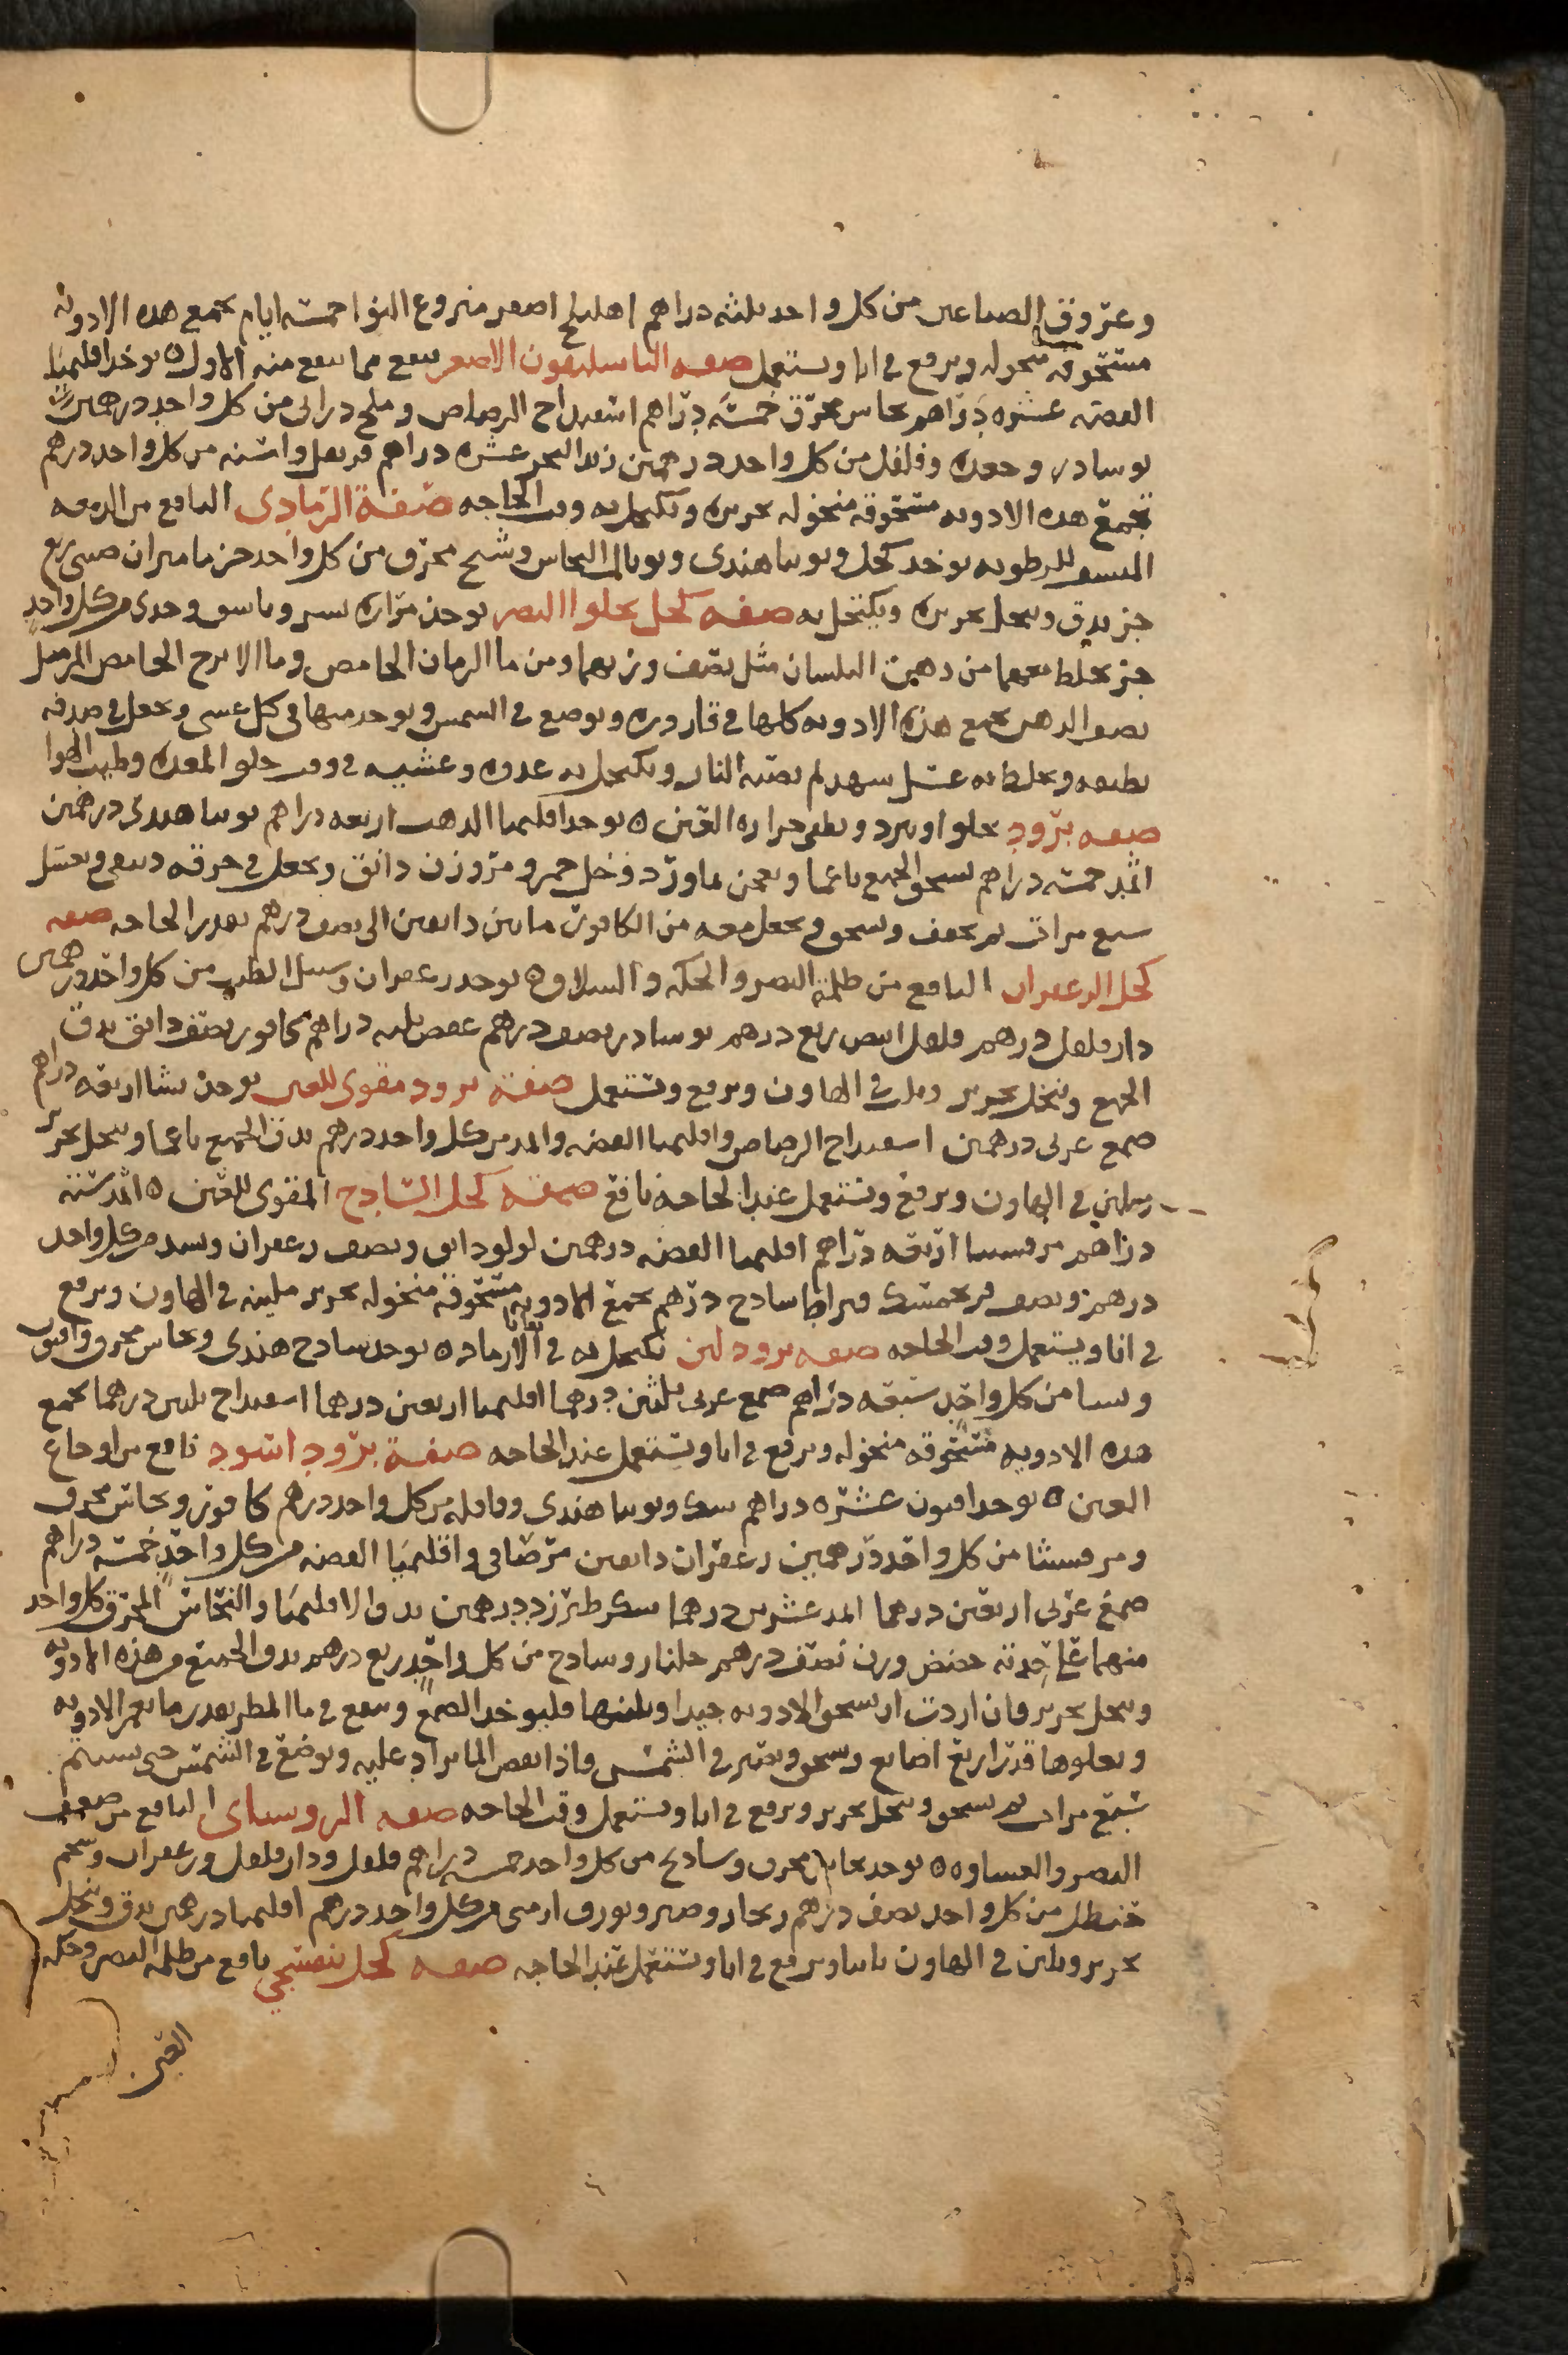 وعروق الصباغين من كل واحد ثلثة دراهم اهليلج اصفر منزوع النوا خمسة ايام تجمع هذه الادوية
مسحوقة منخوله ويرفع في انا ويستعمل صفه الباسليقون الاصغر ينفع مما ينفع منه الاول ه يوخذ اقليميا
الفضه عشره دراهم نحاس محرق خمسة دراهم اسفيداج الرصاص وملح دراني من كل واحد درهمين
نوشادر وجعده وفلفل من كل واحد درهمين زبد البحر عشره دراهم قرنفل واشنه من كل واحد درهم
تجمع هذه الادويه مسحوقة منخوله بحريره ويكتحل به وقت الحاجه صفة الرمادى النافع من الدمعه
المنشف للرطوبه يوخذ كحل وتوتيا هندى وتوبال النحاس وشيح محرق من كل واحد جز ماميران صيني ربع
جز يدق وينخل بحريره ويكتحل به صفه كحل يجلوا البصر يوخذ مرارة نسر وباشق وجدى من كل واحد
جز يخلط معهما من دهن البلسان مثل نصف وزنهما ومن ما الرمان الحامض وما الاترج الحامض المر مثل
نصف الدهن تجمع هذه الادويه كلها في قاروره وتوضع في الشمس ويوخذ منها في كل عشى ويجعل في صدفه
نظيفه ويخلط به عسل شهد لم تصبه النار ويكتحل به غدوه وعشيه في وقت خلو المعده وطيب الهوا
صفه برود يجلوا ويبرد ويطفى حرارة العين ه يوخذ اقليميا الذهب اربعه دراهم توتيا هندى درهمين
اثمد خمسة دراهم يسحق الجميع ناعما ويعجن بماورد وخل خمر ومر وزن دانق ويجعل في خرقه ويغسل
سبع مرات ثم يجفف ويسحق ويجعل معه من الكافور ما بين دانقين الى نصف درهم بقدر الحاجه صفه
كحل الزعفران النافع من ظلمة البصر والحكه والسلاق ه يوخذ زعفران وسنبل الطيب من كل واحد درهمين
دارفلفل درهم فلفل ابيض ربع درهم نوشادر نصف درهم عفص ثلثه دراهم كافور نصف دانق يدق
الجميع وينخل بحرير ويلين في الهاون ويرفع ويستعمل صفة برود مقوى للعين يوخذ نشا اربعه دراهم
صمغ عربى درهمين اسفيداج الرصاص واقليميا الفضه واثمد من كل واحد درهم يدق الجميع ناعما وينخل بحرير
ويلين في الهاون ويرفع ويستعمل عند الحاجه نافع صفه كحل الساذج المقوى للعين ه اثمد ستة
دراهم مرقشيثا اربعه دراهم اقليميا الفضه درهمين لولو دانق ونصف زعفران وسد من كل واحد
درهم ونصف فرنجمشك قيراط ساذج درهم تجمع الادويه مسحوقة منخوله بحرير ملينه في الهاون ويرفع
في انا ويستعمل وقت الحاجه صفه برود لين يكتحل به في الارماد ه يوخذ ساذج هندى ونحاس محرق وافيون
ونشا من كل واحد سبعه دراهم صمغ عربى ثلثين درهما اقليميا اربعين درهما اسفيداج ثلثين درهما تجمع
هذه الادويه مسحوقه منخوله ويرفع في انا ويستعمل عند الحاجه صفة برود اسود نافع من اوجاع
العين ه يوخذ افيون عشره دراهم سك وتوتيا هندى وقاقله من كل واحد درهم كافور ونحاس محرق
ومرقشيثا من كل واحد درهمين زعفران دانقين مر صافى واقليميا الفضه من كل واحد خمسة دراهم
صمغ عربى اربعين درهما اثمد عشرين درهما سكر طبرزد درهمين يدق الاقليميا والنحاس المحرق كل واحد
منهما على حدته حضض وزن نصف درهم جلنار وساذج من كل واحد ربع درهم يدق الجميع من هذه الادويه
وينخل بحرير فان اردت ان تسحق الادويه جيدا وتلينها فليوخذ الصمغ وينقع في ما المطر بقدر ما يغمر الادويه
ويعلوها قدر اربع اصابع ويسحق ويصير في الشمس فاذا نقص الما يزاد عليه ويوضع في الشمس حتى
سبع مرات ثم يسحق وينخل بحرير ويرفع في انا ويستعمل وقت الحاجه صفه الروسناى النافع من ضعف
البصر والغشاوه ه يوخذ نحاس محرق وساذج من كل واحد خمسه دراهم فلفل ودارفلفل وزعفران وشحم
حنظل من كل واحد نصف درهم زنجار وصبر وبورق ارمنى من كل واحد درهم اقليميا درهمين يدق وينخل
بحرير ويلين في الهاون ثانيا ويرفع في انا ويستعمل عند الحاجه صفه كحل بنفسجي نافع من ظلمة البصر وحكه
العين